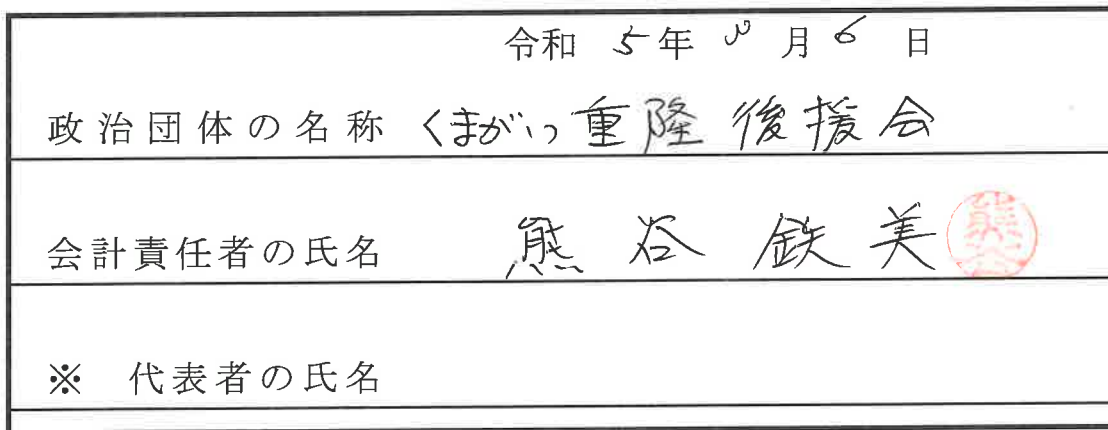 令和 5年 3月6日
政治団体の名称 くまがい重隆後援会
会計責任者の氏名 熊谷鉄美 熊谷
※ 代表者の氏名